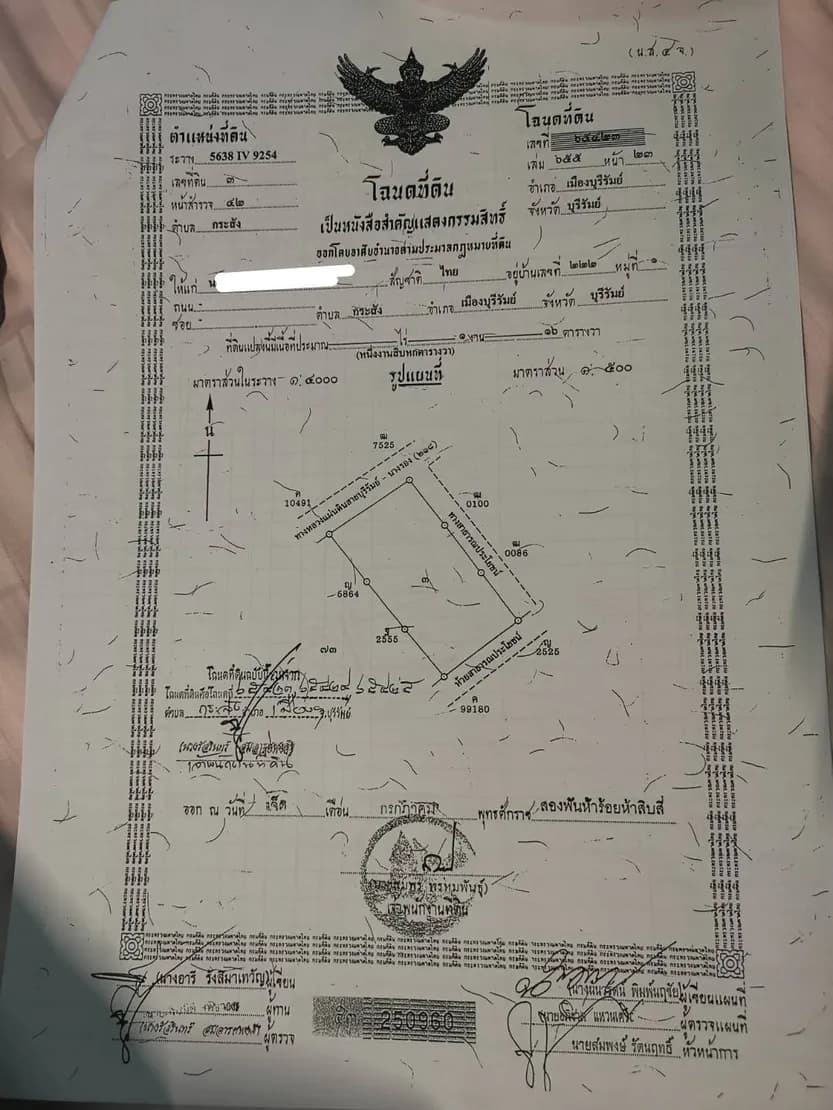 (น.ส.๔ จ.)
ตำแหน่งที่ดิน
ระวาง 5638 IV 9254
เลขที่ดิน ๓
หน้าสำรวจ ๔๒
ตำบล กระสัง
โฉนดที่ดิน
เลขที่ ๖๕๔๒๓
เล่ม ๖๕๕ หน้า ๒๓
อำเภอ เมืองบุรีรัมย์
จังหวัด บุรีรัมย์
โฉนดที่ดิน
เป็นหนังสือสำคัญแสดงกรรมสิทธิ์
ออกโดยอาศัยอำนาจตามประมวลกฎหมายที่ดิน
ให้แก่ สัญชาติ ไทย อยู่บ้านเลขที่ ๒๒๒ หมู่ที่ ๑
ถนน -
ซอย - ตำบล กระสัง อำเภอ เมืองบุรีรัมย์ จังหวัด บุรีรัมย์
ที่ดินแปลงนี้มีเนื้อที่ประมาณ - ไร่ ๑ งาน ๑๖ ตารางวา
(หนึ่งงานสิบหกตารางวา)
มาตราส่วนในระวาง ๑:๔๐๐๐
รูปแผนที่
มาตราส่วน ๑:๕๐๐
น
ฒ
7525
ค
10491
ทางหลวงแผ่นดินสายบุรีรัมย์ - นางรอง (๒๑๘)
ฒ
0100
ทางสาธารณประโยชน์
ฒ
0086
ญ
6864
๓
ฐ
2555
ห้วยสาธารณประโยชน์
ญ
2525
ค
99180
๗๓
โฉนดที่ดินฉบับนี้
โฉนดที่ดินคือโฉนดที่ ๖๕๔๒๓, ๖๕๔๒๔, ๖๕๔๒๕
ตำบล กระสัง อำเภอ เมือง บุรีรัมย์
เจ้าพนักงานที่ดิน
ออก ณ วันที่ เจ็ด เดือน กรกฎาคม พุทธศักราช สองพันห้าร้อยห้าสิบสี่
เจ้าพนักงานที่ดิน
(นางอารี รังสิมาเทวัญ) ผู้เขียน
ผู้ทาน
ผู้ตรวจ
250960
พิมพ์นฤชัย) ผู้เขียนแผนที่
ผู้ตรวจแผนที่
นายสมพงษ์ รัตนฤทธิ์ หัวหน้าการ